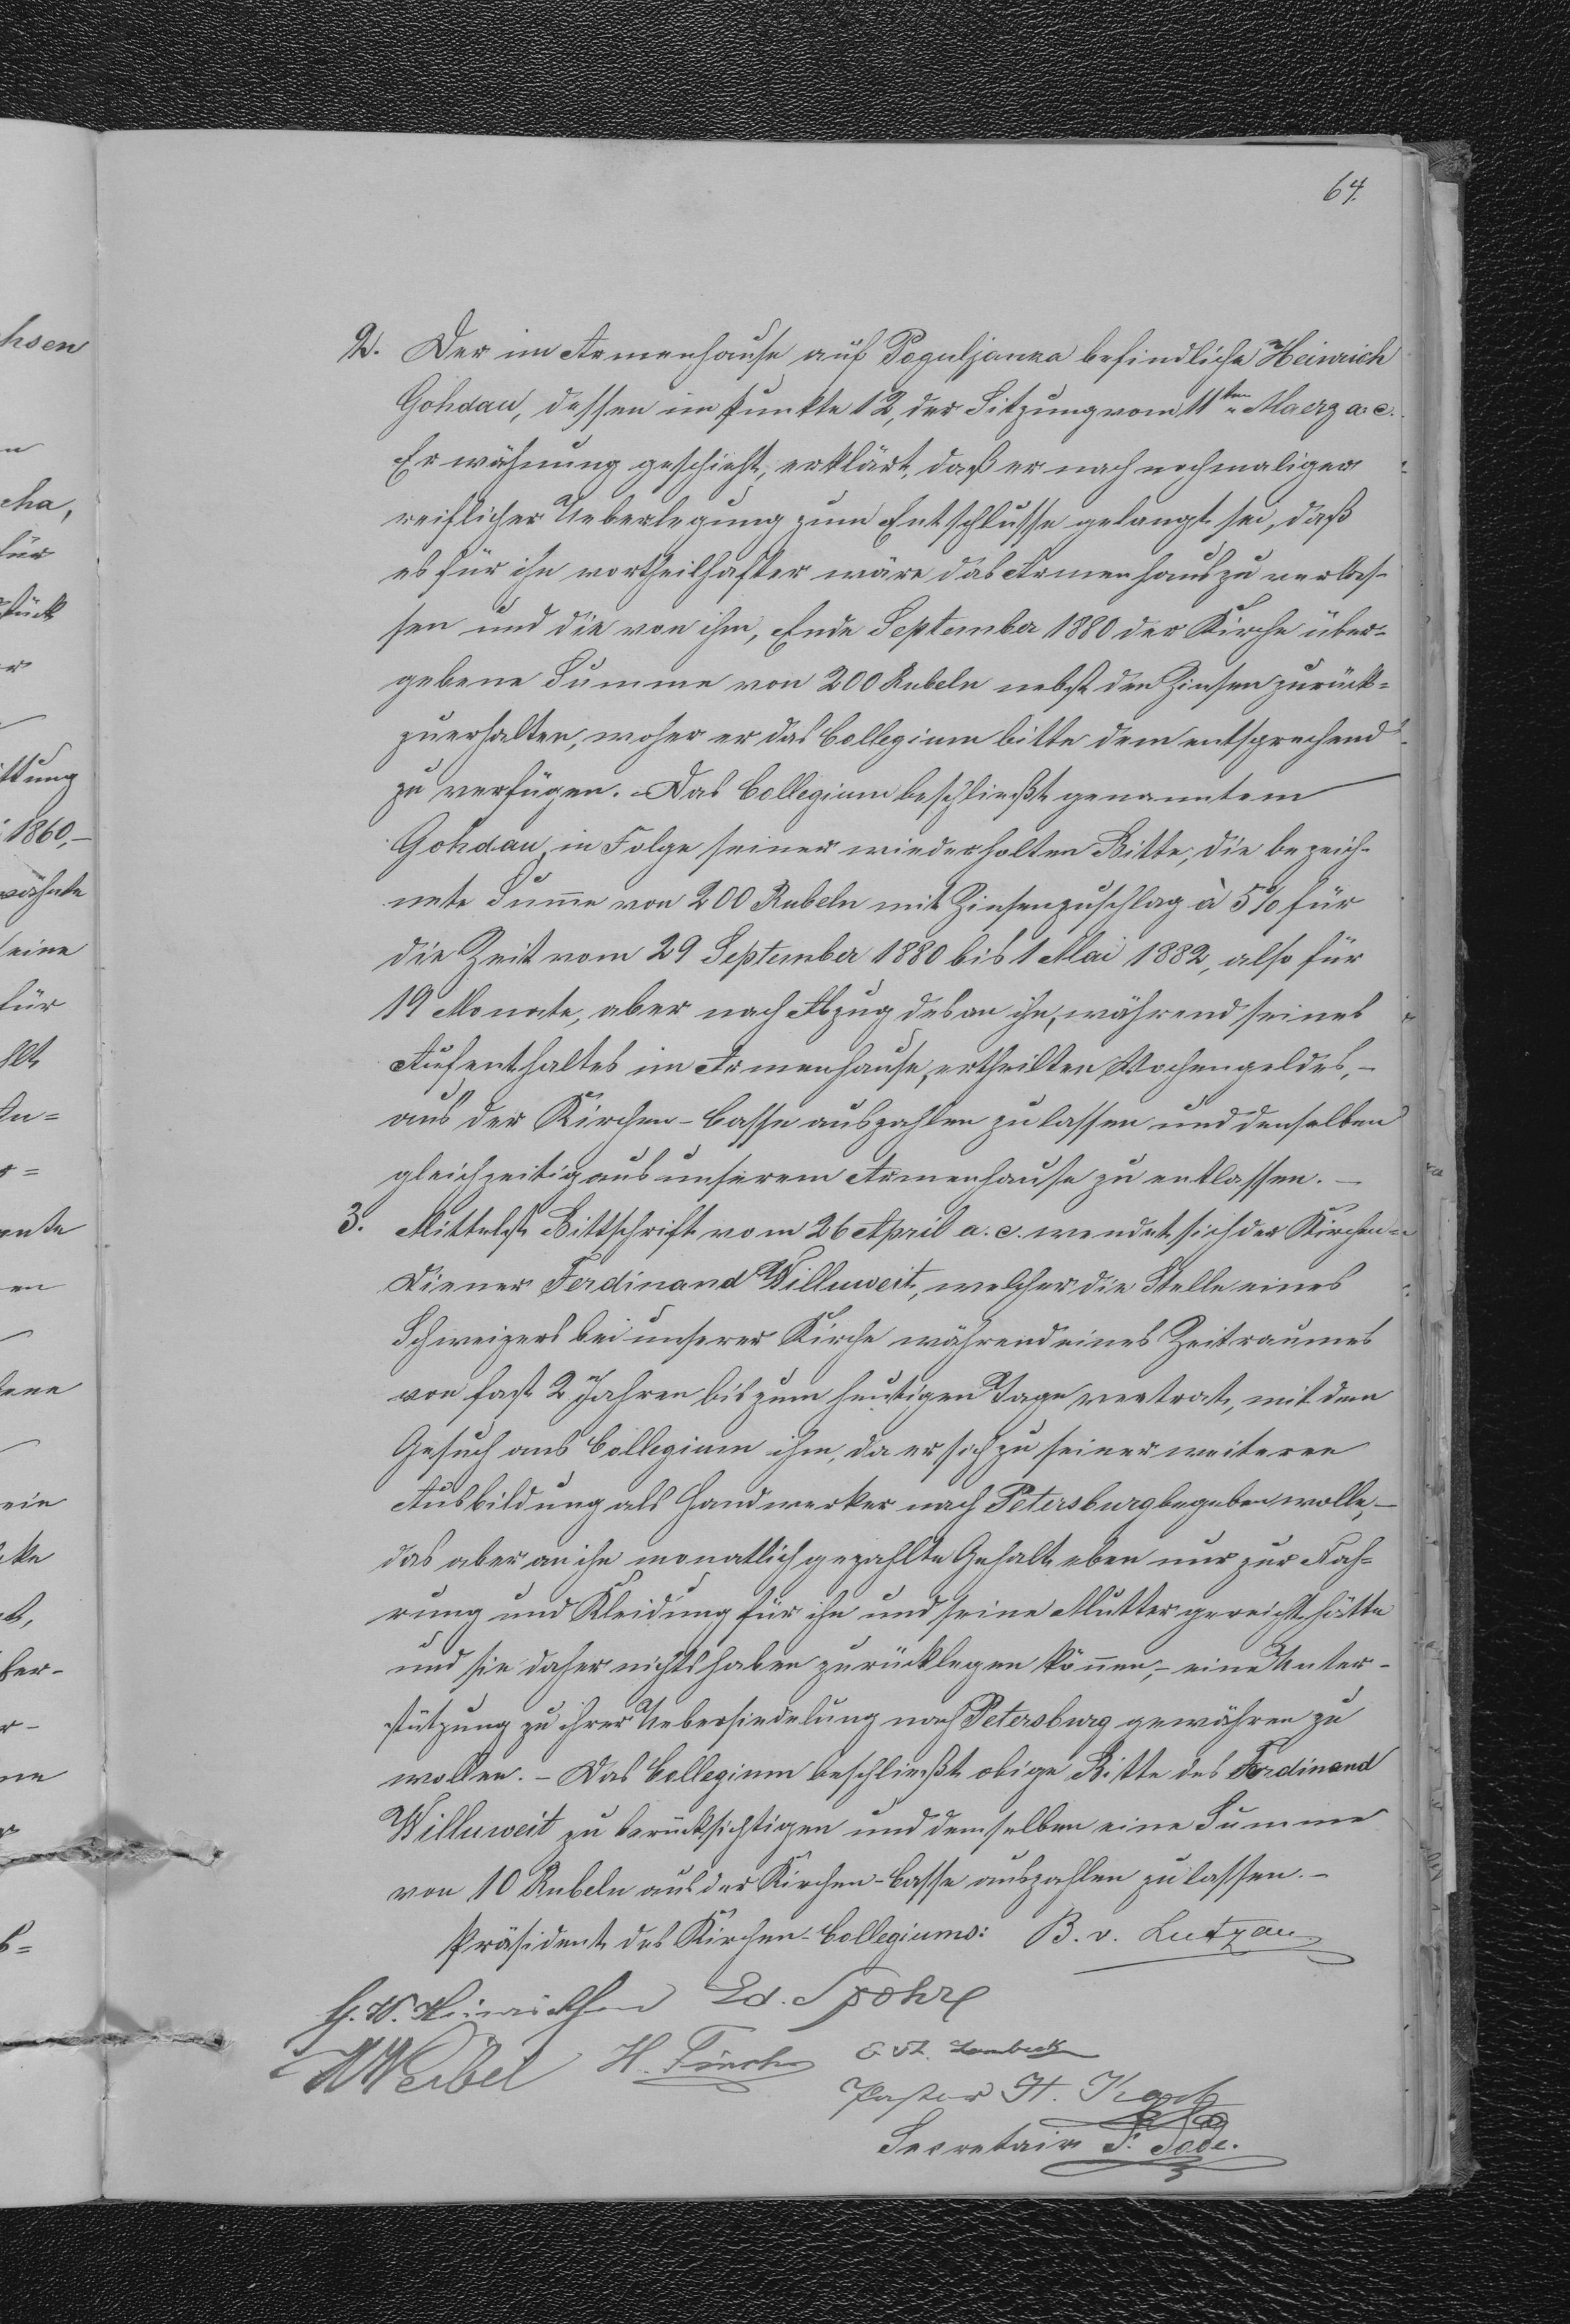 64.
2. Der im Armenhause auf Poguljanka befindliche Heinrich
Gohdau, dessen im Punkte 12, der Sitzung vom 11ten Maerz a. c.
Erwähnung geschieht, erklärt, daß er nach nochmaliger
reiflicher Ueberlegung zum Entschlusse gelangt sei, daß
es für ihn vortheilhafter wäre das Armenhaus zu verlas-
sen und die von ihm, Ende September 1880 der Kirche über=
gebene Summe von 200 Rubeln nebst den Zinsen zurück=
zuerhalten, woher er das Collegium bitte dem entsprechend
zu verfügen. Das Collegium beschließt genanntem
Gohdau, in Folge seiner wiederholten Bitte, die bezeich-
nete Sum̅e von 200 Rubeln mit Zinsenzuschlag à 5% für
die Zeit vom 29 September 1880 bis 1 Mai 1882, also für
19 Monate, aber nach Abzug des an ihn, während seines
Aufenthaltes im Armenhause, ertheilten Wochengeldes, –
aus der Kirchen-Casse auszahlen zu lassen und denselben
gleichzeitig aus unserem Armenhause zu entlassen. –
3. Mittelst Bittschrift vom 26 April a. c. wendet sich der Kirchen=
diener Ferdinand Willuweit, welcher die Stelle eines
Schweizers bei unserer Kirche während eines Zeitraumes
von fast 2 Jahren bis zum heutigen Tage vertrat, mit dem
Gesuch ans Collegium ihm, da er sich zu seiner weiteren
Ausbildung als Handwerker nach Petersburg begeben wolle, –
das aber an ihn monatlich gezahlte Gehalt eben nur zur Nah=
rung und Kleidung für ihn und seine Mutter gereicht hätte
und sie daher nichts haben zurücklegen kön̅en, – eine Unter-
stützung zu ihrer Uebersiedelung nach Petersburg gewähren zu
wollen. – Das Collegium beschließt obige Bitte des Ferdinand
Willuweit zu berücksichtigen und demselben eine Summe
von 10 Rubeln aus der Kirchen-Casse auszahlen zu lassen. –
Präsident des Kirchen-Collegiums: B. v. Lutzau
G. W. Hinrichsen Ed. Spohr
Weibel H.
Pastor H.
Secretair